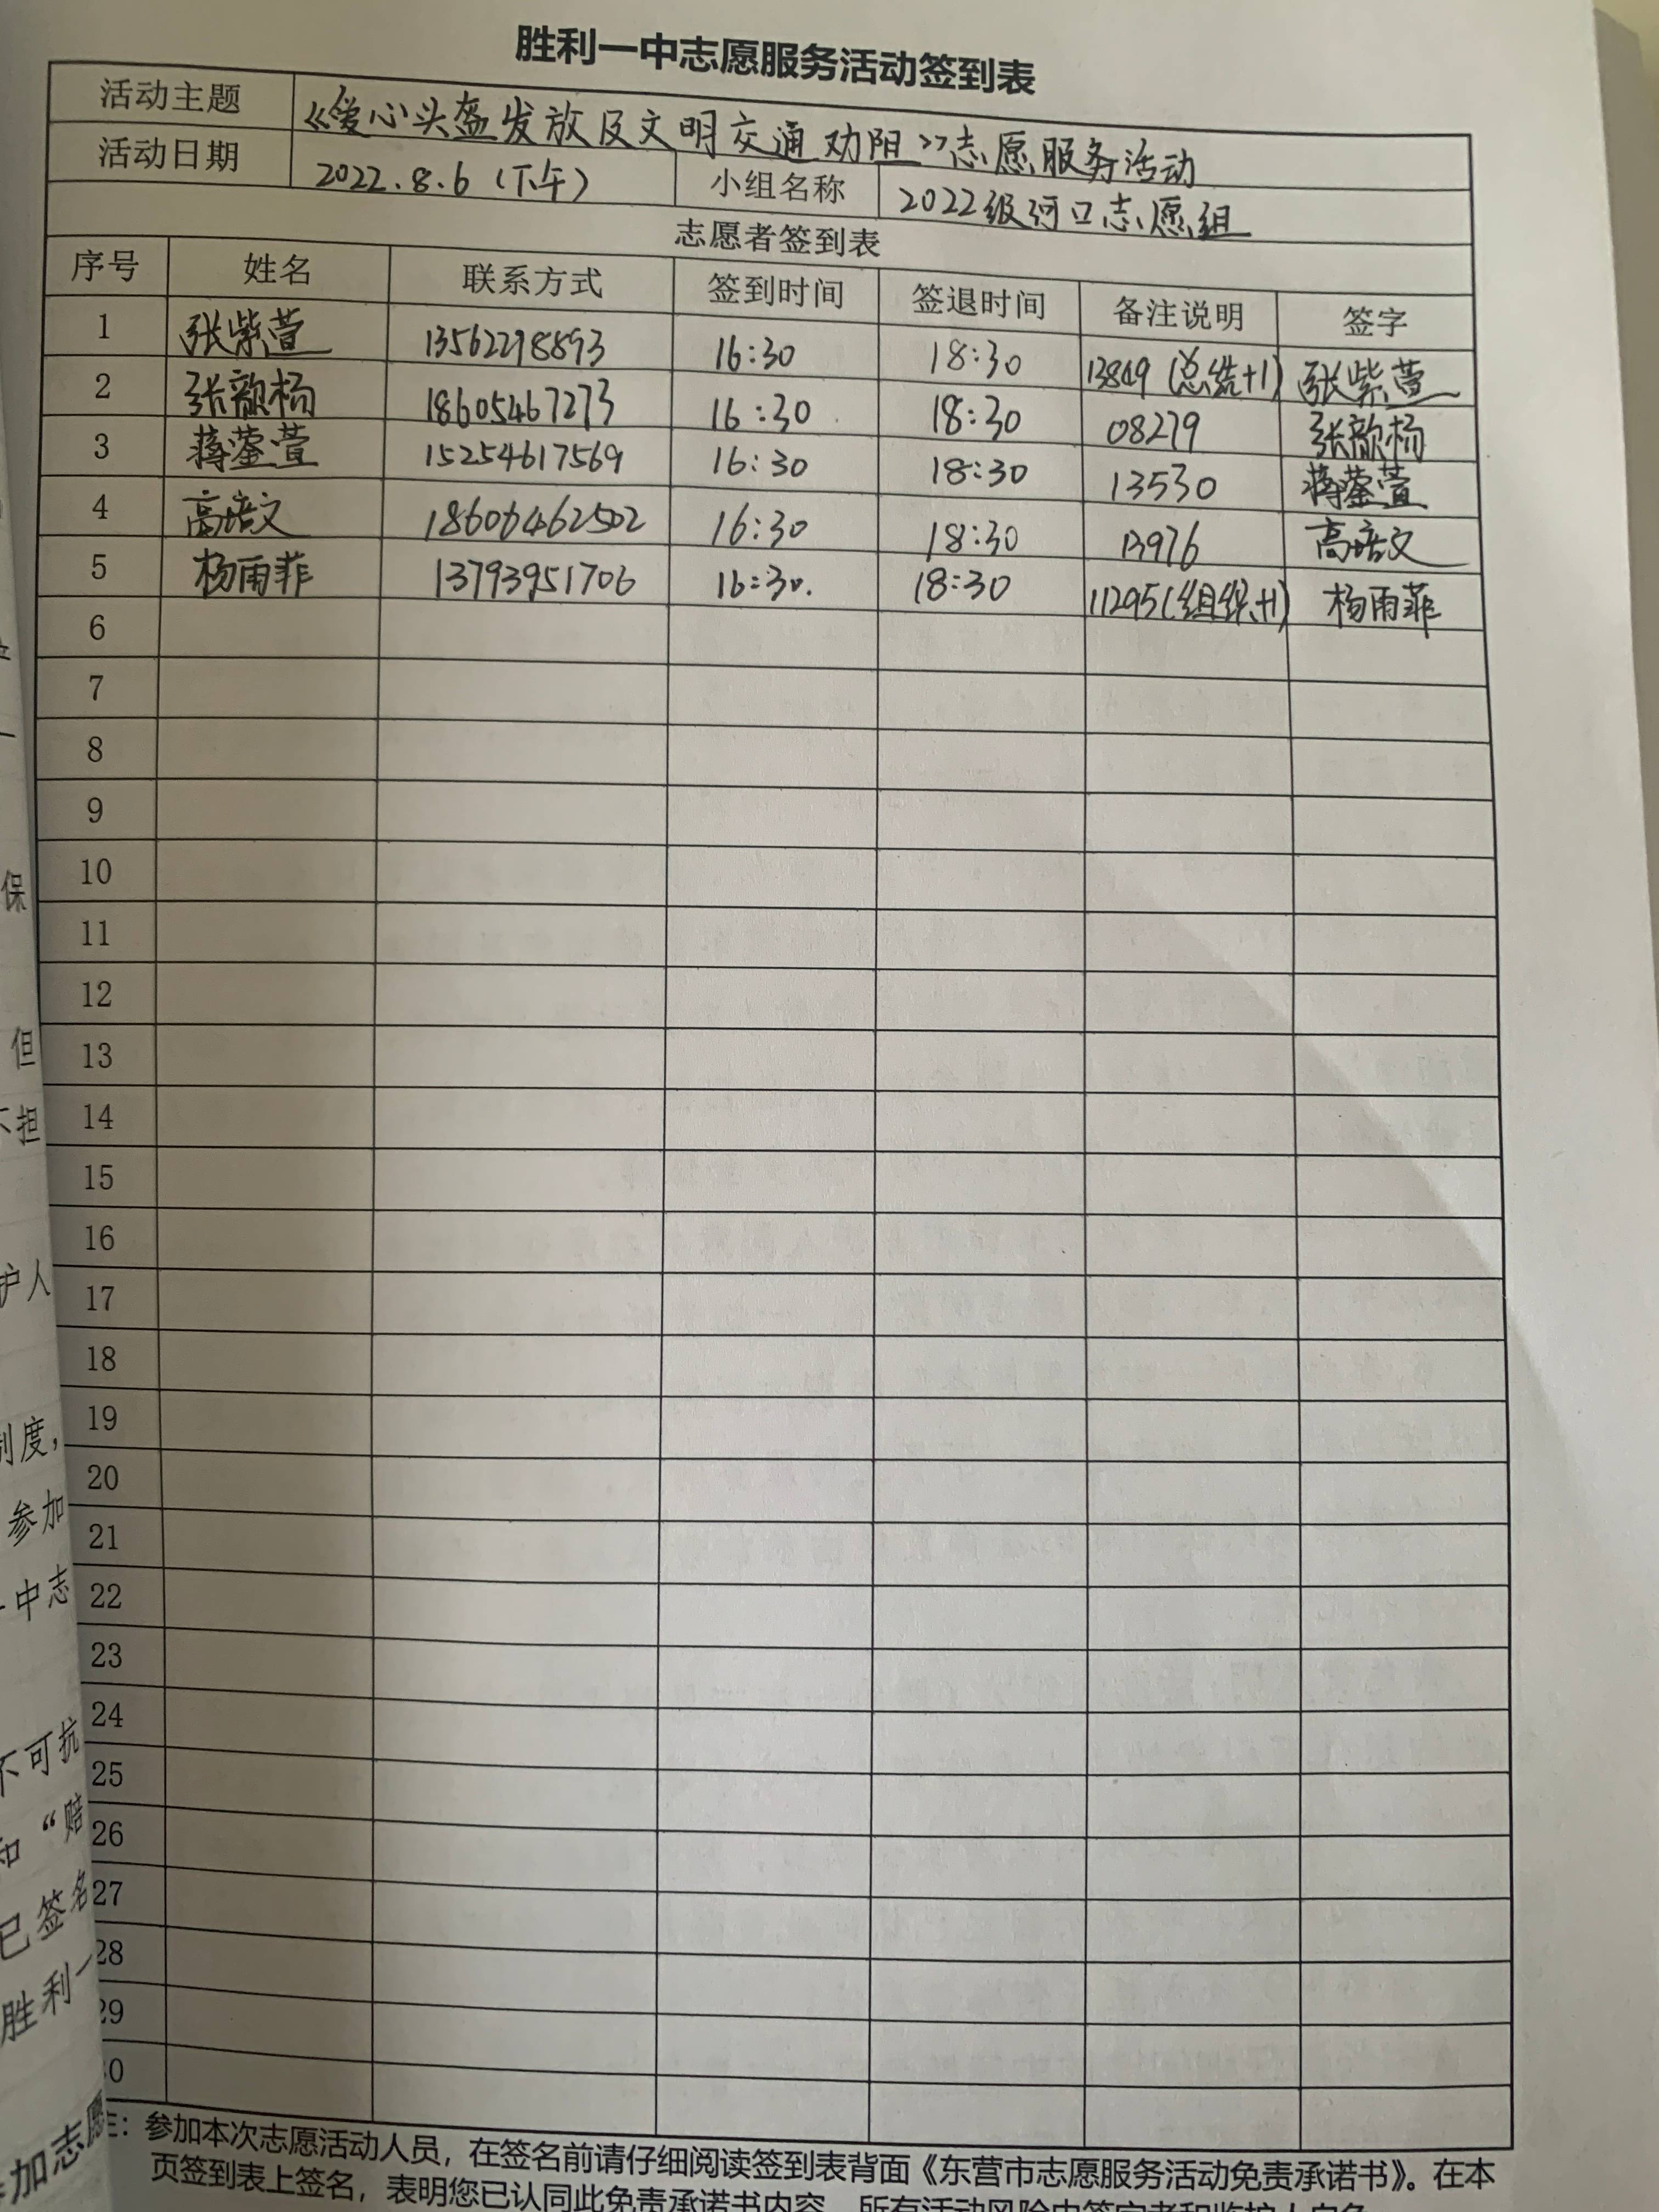 胜利一中志愿服务活动签到表
活动主题 《爱心头盔发放及文明交通劝阻》志愿服务活动
活动日期 2022.8.6(下午) 小组名称 2022级河口志愿组
志愿者签到表
序号 姓名 联系方式 签到时间 签退时间 备注说明 签字
1 张紫萱 13562298893 16:30 18:30 13849(总结+1) 张紫萱
2 张歆杨 18605467273 16:30 18:30 08279 张歆杨
3 蒋蓥萱 15254617569 16:30 18:30 13530 蒋蓥萱
4 高培文 18606462502 16:30 18:30 13976 高培文
5 杨雨菲 13793951706 16:30. 18:30 11295(组织+1) 杨雨菲
6
7
8
9
10
11
12
13
14
15
16
17
18
19
20
21
22
23
24
25
26
27
28
29
30
注：参加本次志愿活动人员，在签名前请仔细阅读签到表背面《东营市志愿服务活动免责承诺书》。在本
页签到表上签名，表明您已认同此免责承诺书内容，所有活动风险由签字者和监护人自负
保
但
不担
护人
制度，
参加
一中志
不可抗
和“赔
已签名
胜利一
参加志愿